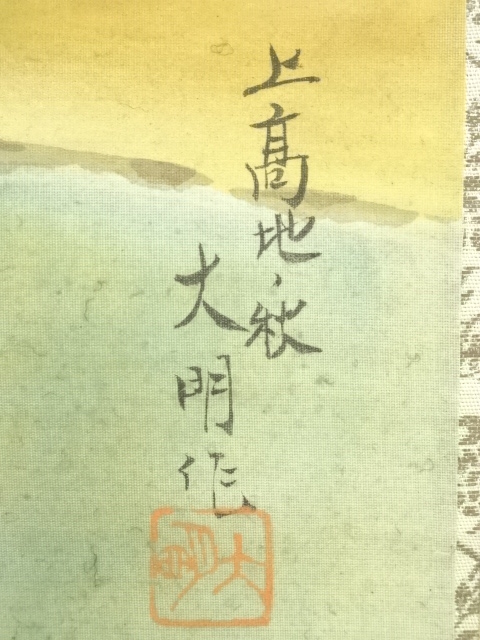 上髙地、秋
大明作
大明